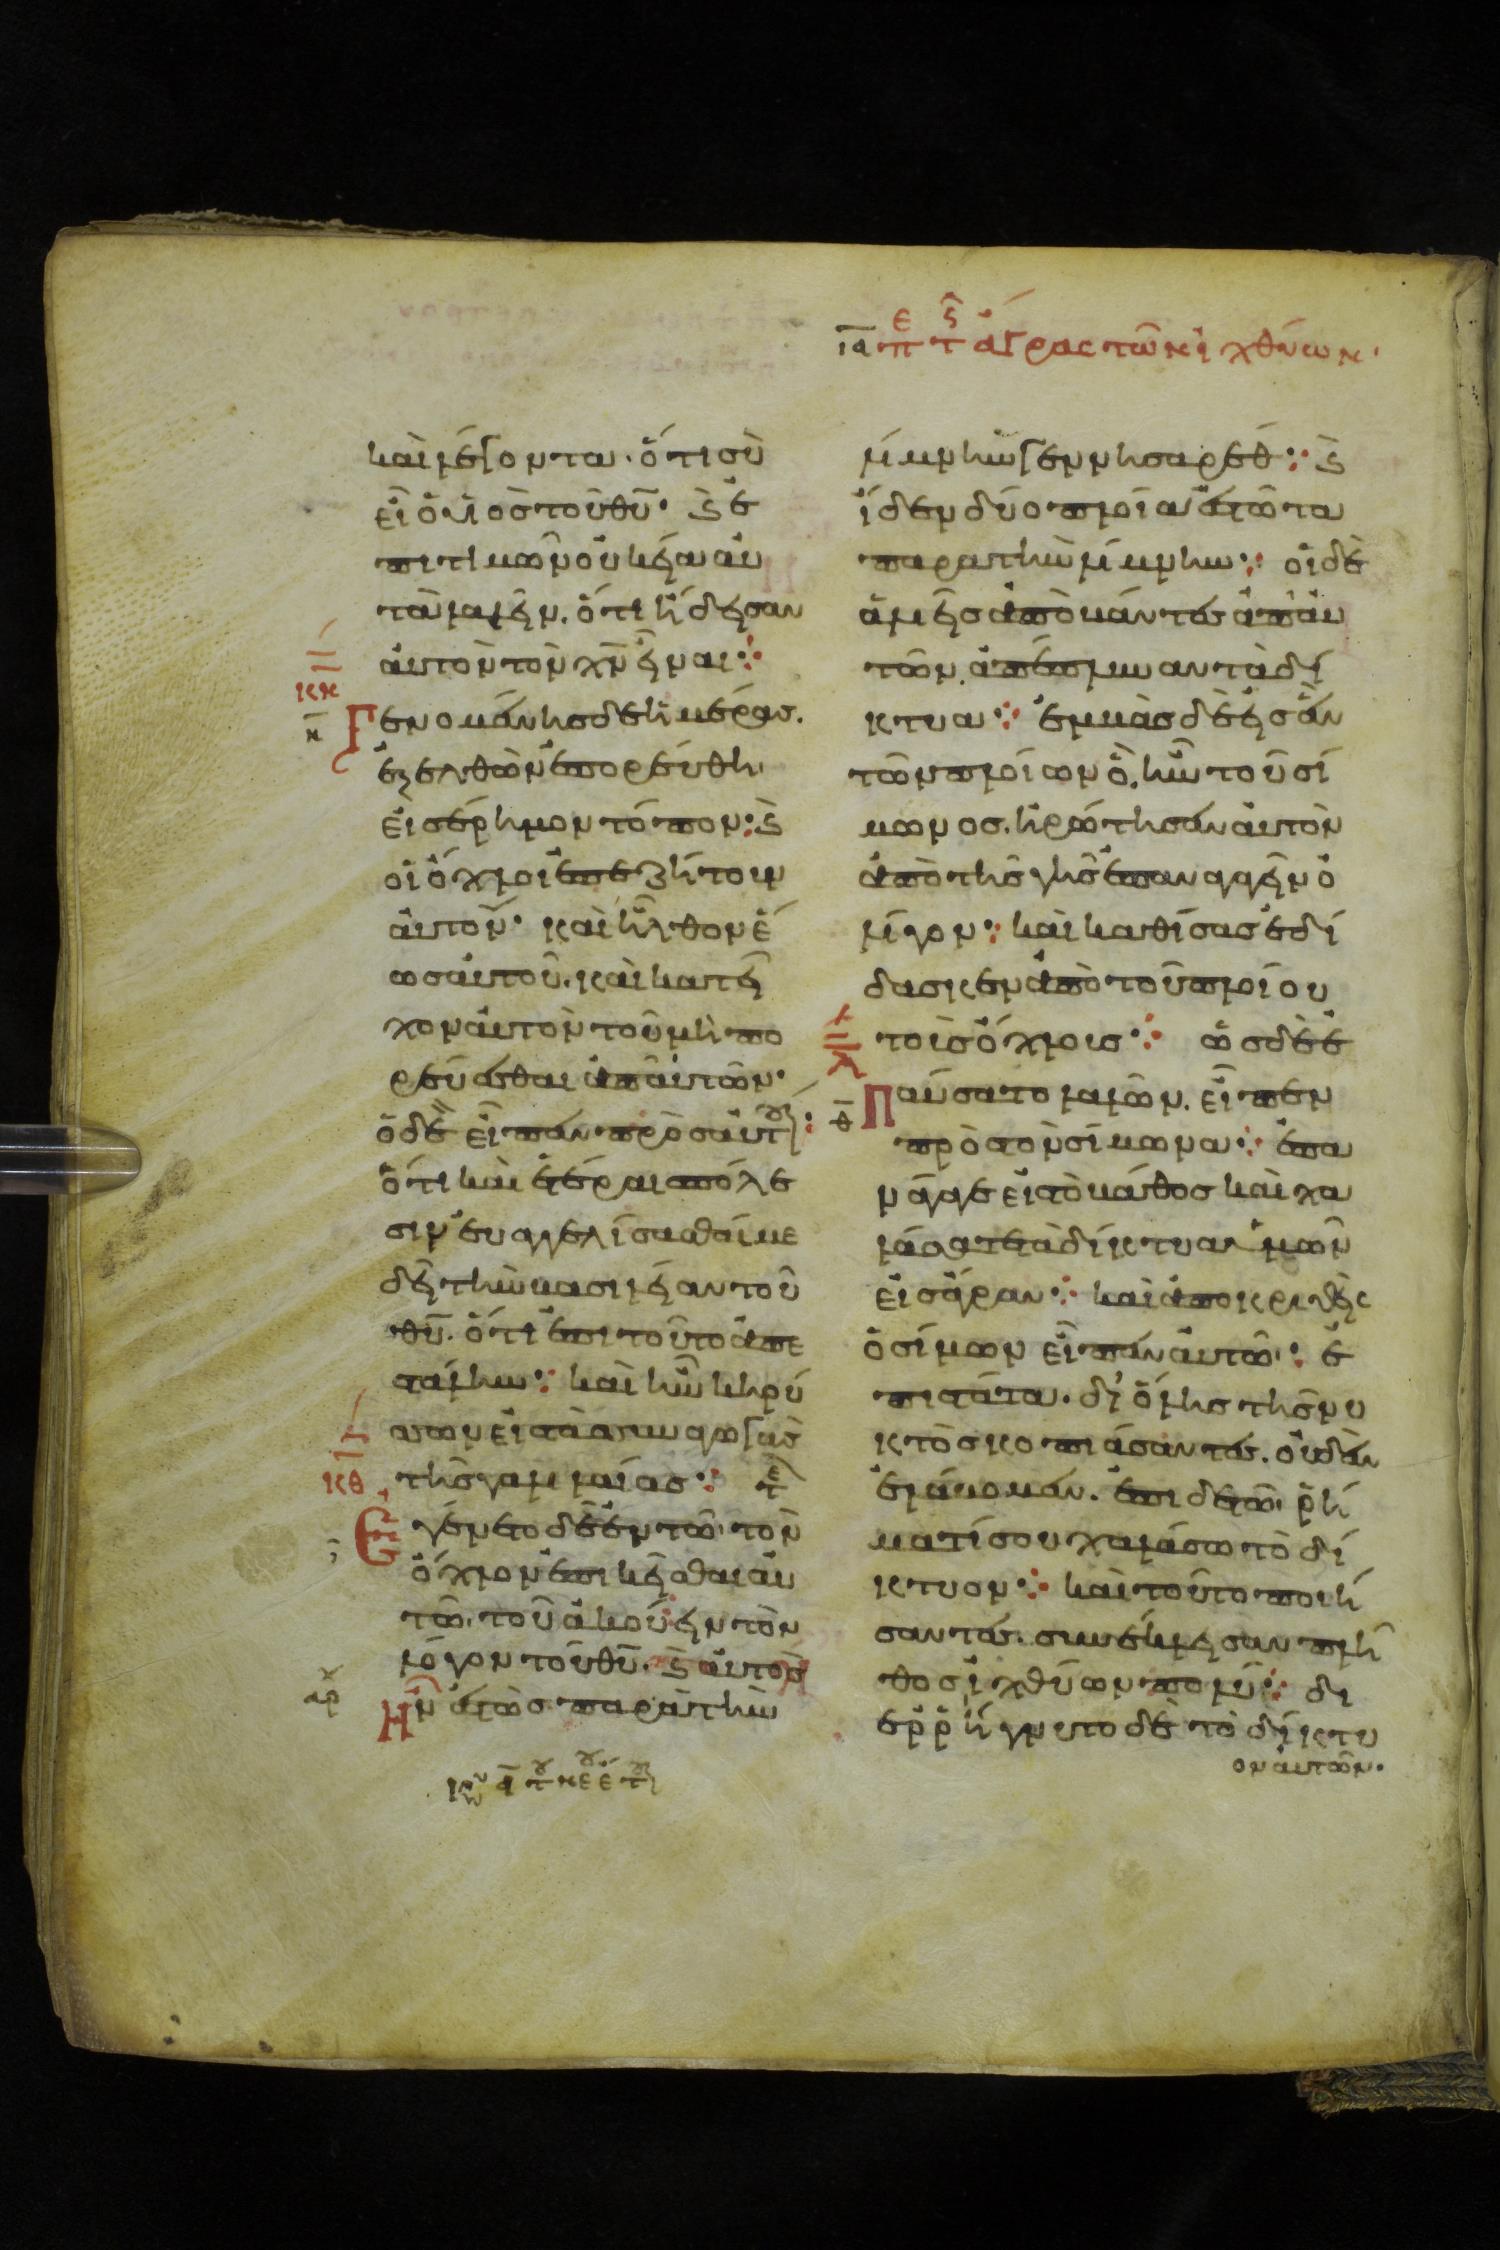 ια περὶ τῆς ἄγρας τῶν ἰχθύων·
καὶ λέγοντα· ὅτι σὺ
εἶ ὁ υἱὸς τοῦ θῦ· καὶ ἐ
πιτιμῶν οὐκ εἴα αὐ
τὰ λαλεῖν. ὅτι ᾔδεισαν
αὐτὸν τὸν χν εἶναι:
Γενομένης δὲ ἡμέρας.
ἐξελθὼν ἐπορεύθη
εἰς ἔρημον τόπον: καὶ
οἱ ὄχλοι ἐπεζήτουν
αὐτόν· καὶ ἦλθον ἕ
ως αὐτοῦ. καὶ κατεῖ
χον αὐτὸν τοῦ μὴ πο
ρεύεσθαι ἀπ' αὐτῶν·
ὁ δὲ εἶπεν πρὸς αὐτούς:
ὅτι καὶ ἑτέραις πόλε
σιν εὐαγγελίσασθαί με
δεῖ τὴν βασιλείαν τοῦ
θῦ. ὅτι ἐπὶ τοῦτο ἀπε
στάλην: καὶ ἦν κηρύ
σσων εἰς τὰς συναγωγὰς
τῆς γαλιλαίας: τε
Ἐγένετο δὲ ἐν τῶ τὸν
ὄχλον ἐπικεῖσθαι αὐ
τῶ. τοῦ ἀκούειν τὸν
λόγον τοῦ θῦ. καὶ αὐτὸς
Ἦν ἑστὼς παρὰ τὴν
λίμνην γεννησαρέθ: καὶ
ἴδεν δύο πλοῖα ἑστῶτα
παρὰ τὴν λίμνην: οἱ δὲ
ἁλιεῖς ἀποβάντες ἀπ' αὐ
τῶν. ἀπέπλυναν τὰ δί
κτυα: ἐμβὰς δὲ εἰς ἓν
τῶν πλοίων ὃ ἦν τοῦ σί
μωνος. ἠρώτησεν αὐτὸν
ἀπὸ τῆς γῆς ἐπαναγαγεῖν ὀ
λίγον: καὶ καθίσας ἐδί
δασκεν ἀπὸ τοῦ πλοίου
τοὺς ὄχλους: ὡς δὲ ἐ
Παύσατο λαλῶν. εἶπεν
πρὸς τὸν σίμωνα: ἐπα
νάγαγε εἰς τὸ βάθος καὶ χα
λάσατε τὰ δίκτυα ὑμῶν
εἰς ἄγραν: καὶ ἀποκριθεὶς
ὁ σίμων εἶπεν αὐτῶ: ἐ
πιστάτα. δι' ὅλης τῆς νυ
κτὸς κοπιάσαντες. οὐδὲν
ἐλάβομεν. ἐπὶ δὲ τῶ ῥή
ματί σου χαλάσω τὸ δί
κτυον: καὶ τοῦτο ποιή
σαντες. συνέκλεισαν πλῆ
θος ἰχθύων πολύ: δι
ερρήγνυτο δὲ τὸ δίκτυ
ον αὐτῶν.